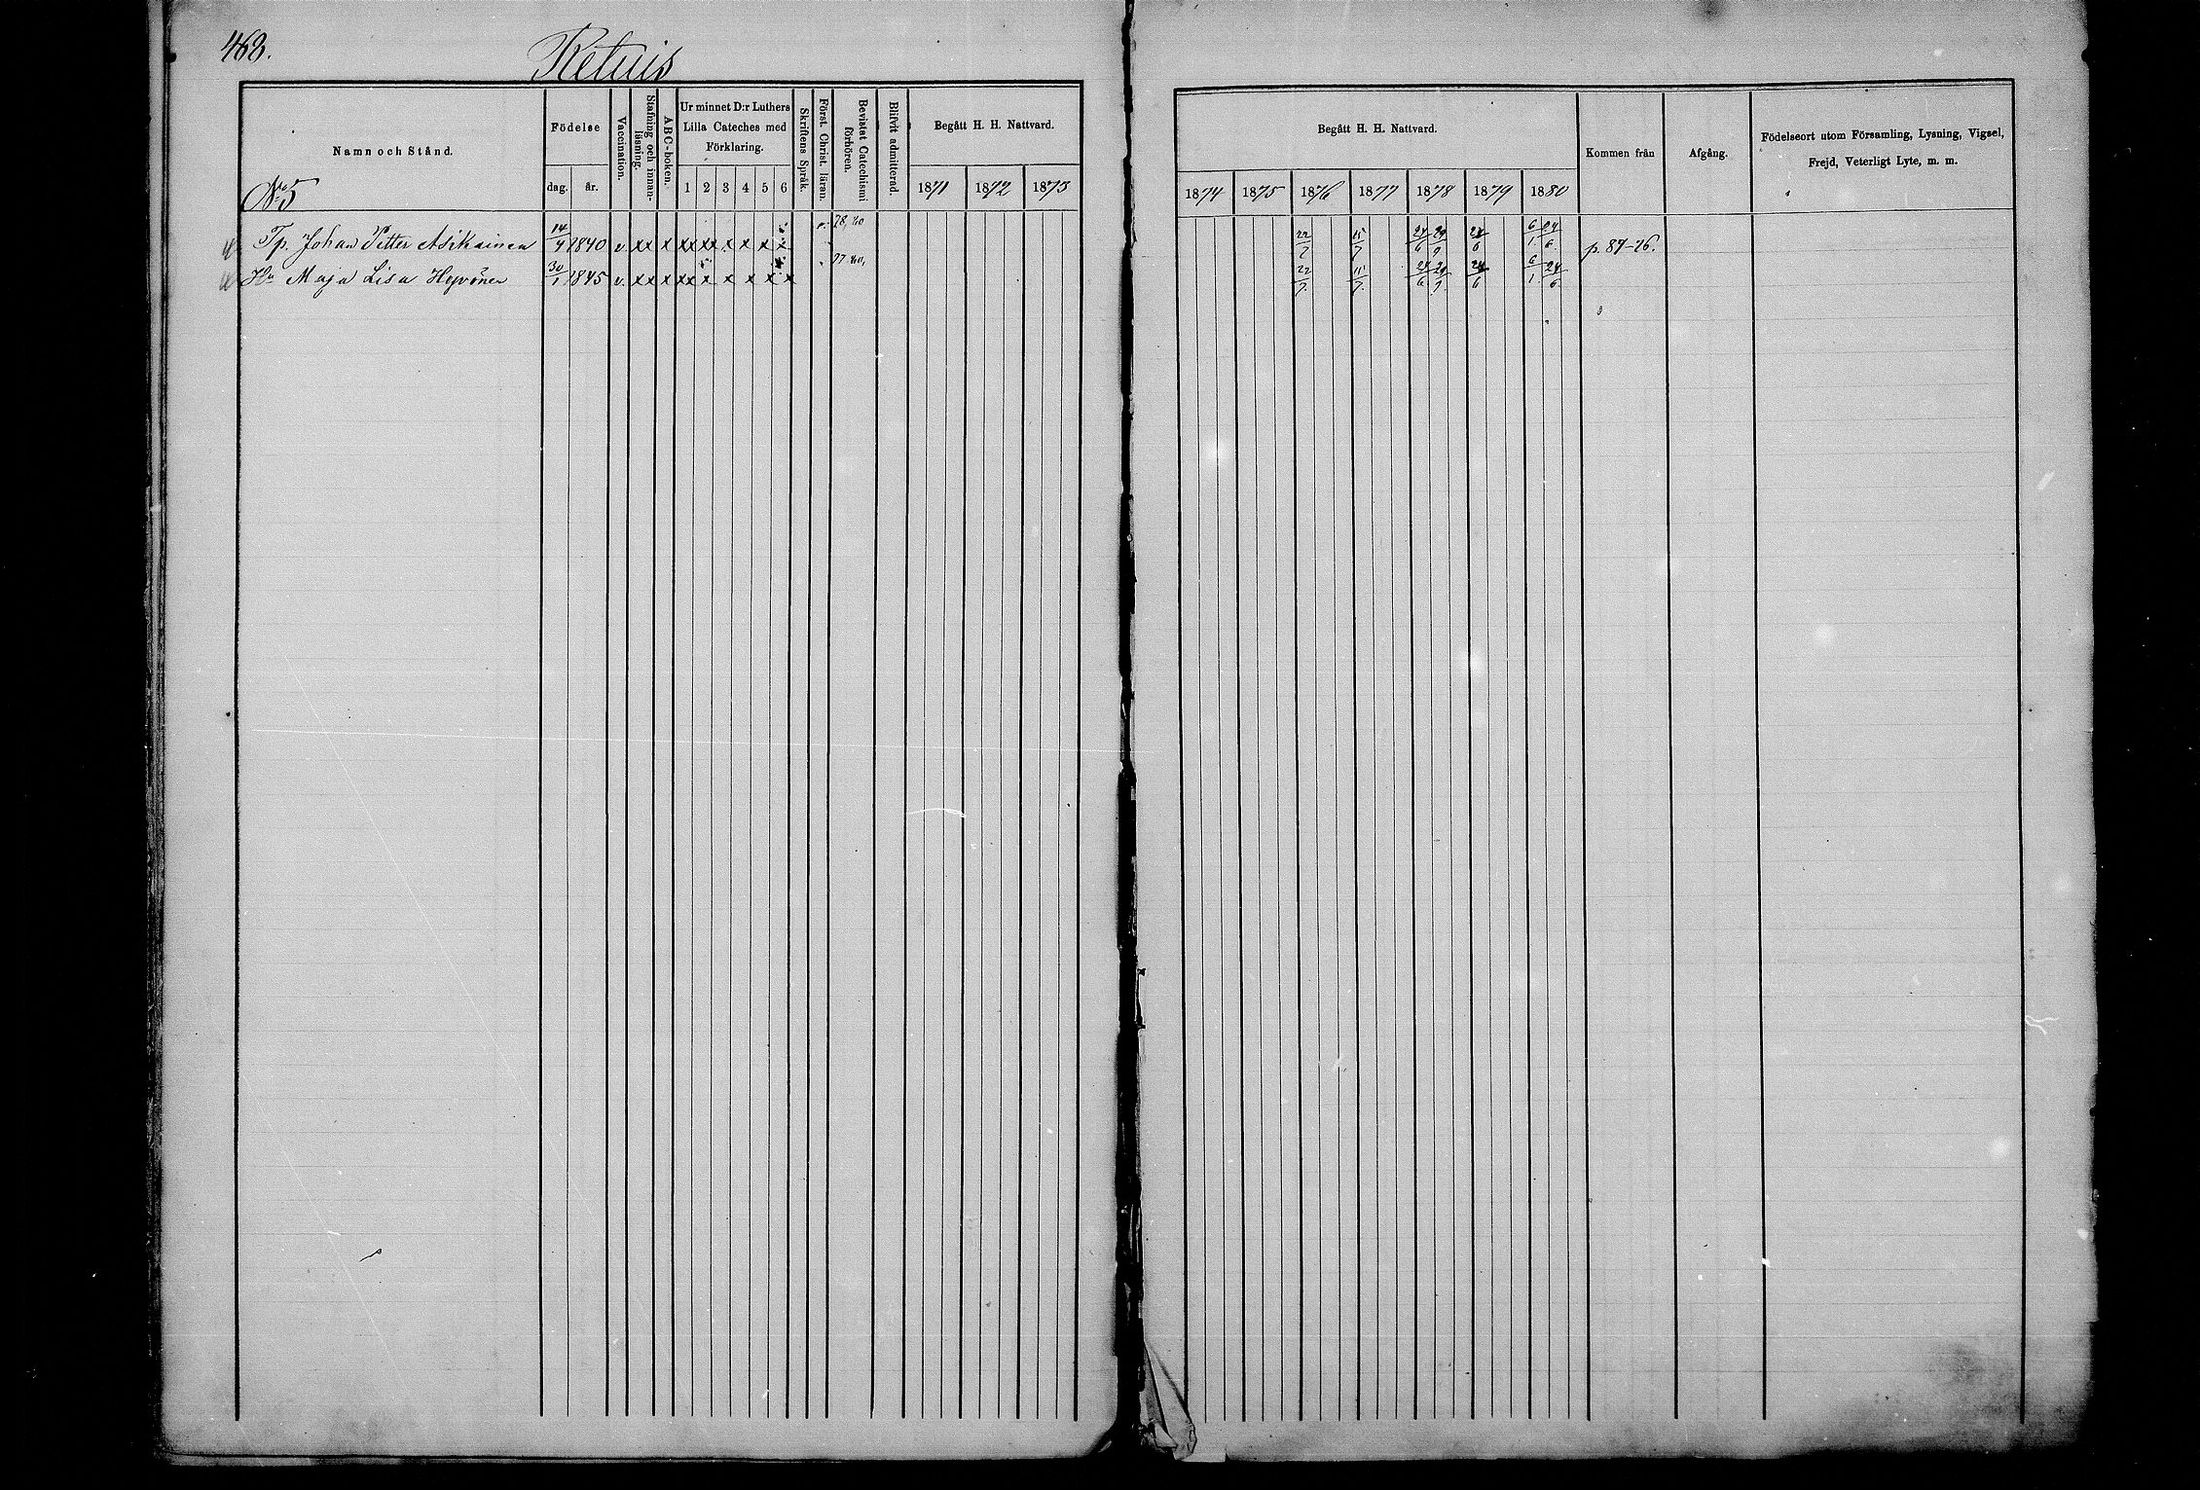 468.
Retuis
Namn och Stånd.
Födelse
dag.
år.
Vaccination.
Stafning och innanläsning.
ABC-boken.
Ur minnet D:r Luthers
Lilla Cateches med
Förklaring.
1 2 3 4 5 6
Skriftens Språk.
Först. Christ. läran.
Bevistat Catechismi förhören.
Blifvit admitterad.
Begått H. H. Nattvard.
1871 1872 1873
Begått H. H. Nattvard.
1874 1875 1876 1877 1878 1879 1880
Kommen från
Afgång.
Födelseort utom Församling, Lysning, Vigsel,
Frejd, Veterligt Lyte, m. m.
No 5
Tp. Johan Petter Asikainen 14/4 1840 v. xx x xx xx x x x x 78, 80 22/7 15/7 24/6 29/9 24/6 6/1 24/6 p. 87-76.
Hu Maja Lisa Hyvönen 30/1 1845 v. xx x xx x x x x x 77 80, 22/7 15/7 24/6 29/9 24/6 6/1 24/6